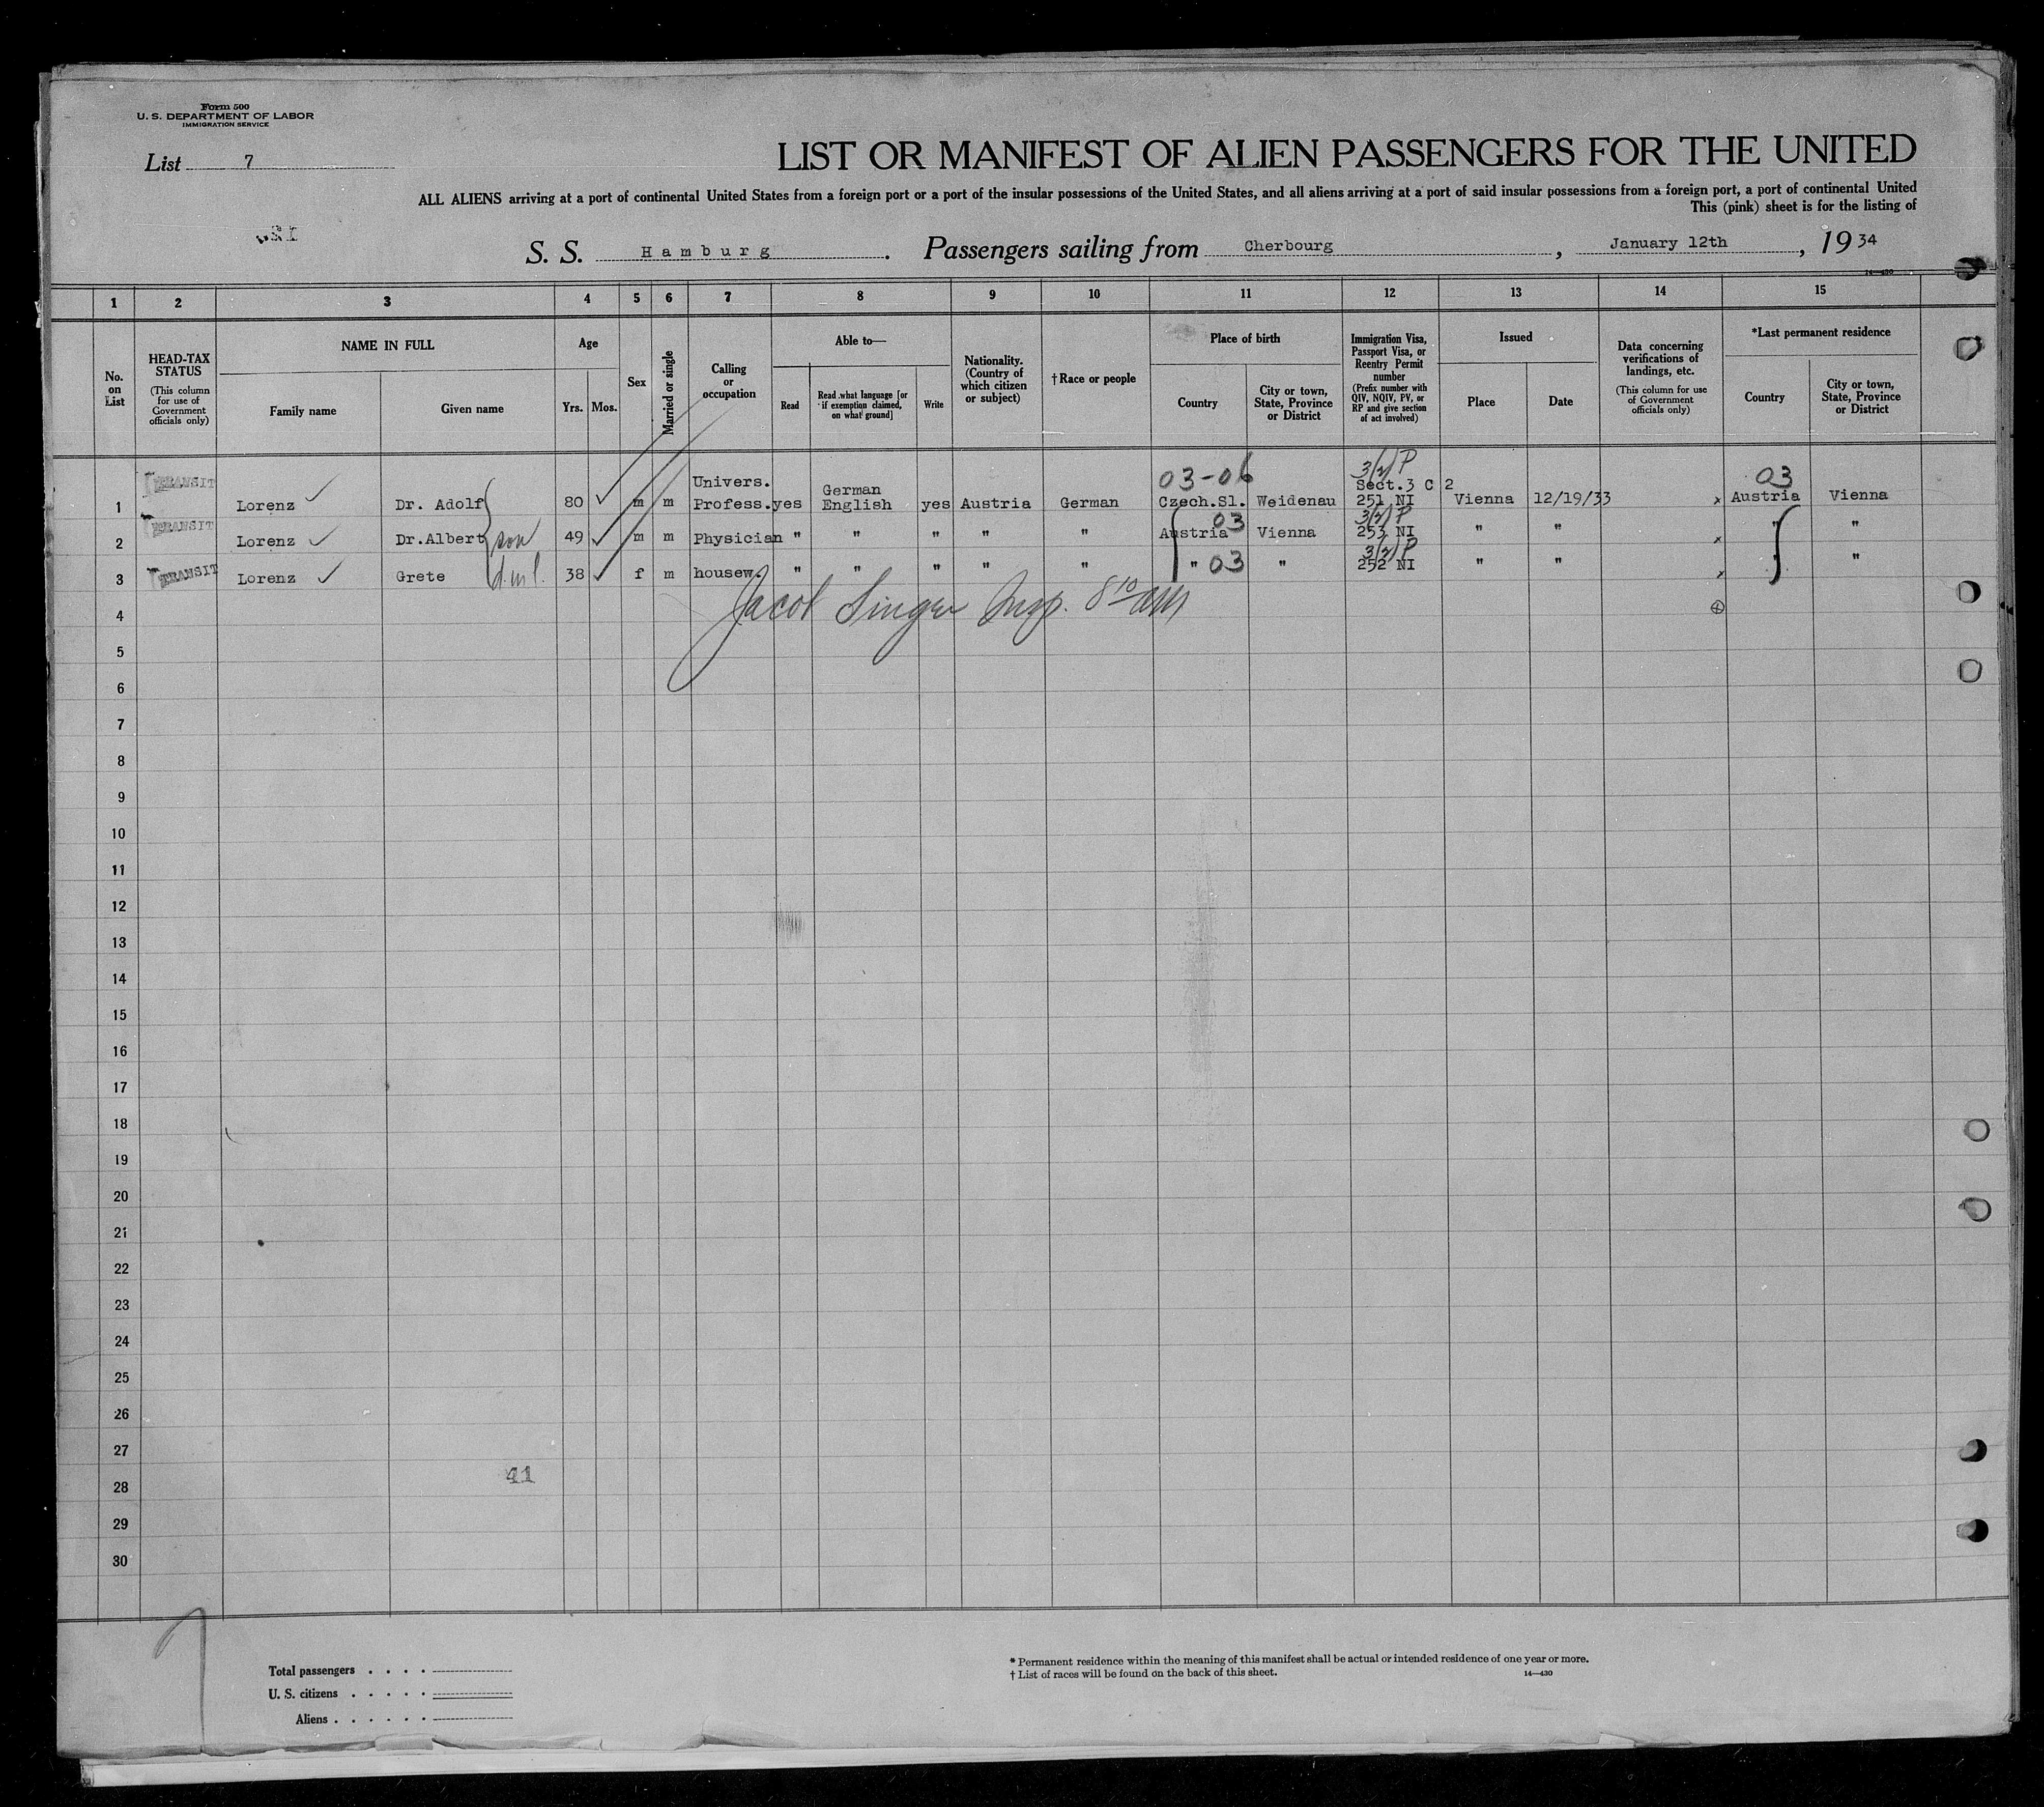 Form 500
U. S. DEPARTMENT OF LABOR
IMMIGRATION SERVICE
List 7
LIST OR MANIFEST OF ALIEN PASSENGERS FOR THE UNITED
ALL ALIENS arriving at a port of continental United States from a foreign port or a port of the insular possessions of the United States, and all aliens arriving at a port of said insular possessions from a foreign port, a port of continental United
This (pink) sheet is for the listing of
S. S. Hamburg. Passengers sailing from Cherbourg, January 12th, 1934
14—430
1 2 3 4 5 6 7 8 9 10 11 12 13 14 15
No. on List
HEAD-TAX STATUS (This column for use of Government officials only)
NAME IN FULL
Family name
Given name
Age
Yrs.
Mos.
Sex
Married or single
Calling or occupation
Able to—
Read
Read what language [or if exemption claimed, on what ground]
Write
Nationality. (Country of which citizen or subject)
†Race or people
Place of birth
Country
City or town, State, Province or District
Immigration Visa, Passport Visa, or Reentry Permit number (Prefix number with QIV, NQIV, PV, or RP and give section of act involved)
Issued
Place
Date
Data concerning verifications of landings, etc. (This column for use of Government officials only)
*Last permanent residence
Country
City or town, State, Province or District
03-06 3/2/P 03
TRANSIT Univers. German Sect.3 C 2
1 Lorenz Dr. Adolf 80 m m Profess. yes English yes Austria German Czech.Sl. Weidenau 251 NI Vienna 12/19/33 x Austria Vienna
TRANSIT 03 3/2/P
2 Lorenz Dr.Albert son 49 m m Physician " " " " " Austria Vienna 253 NI " " x " "
TRANSIT 3/2/P
3 Lorenz Grete d.in l. 38 f m housew. " " " " " " 03 " 252 NI " " x " "
4 Jacob Singer Insp. 8 10 AM
5
6
7
8
9
10
11
12
13
14
15
16
17
18
19
20
21
22
23
24
25
26
27
41
28
29
30
Total passengers . . . .
U. S. citizens . . . . .
Aliens . . . . . .
* Permanent residence within the meaning of this manifest shall be actual or intended residence of one year or more.
† List of races will be found on the back of this sheet. 14—430